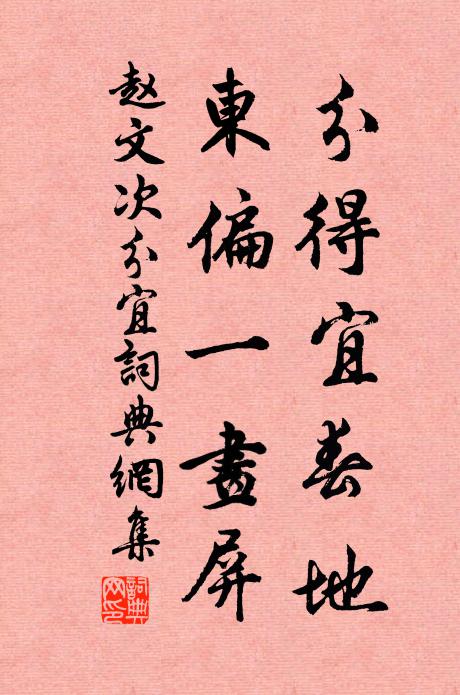 分得宜春地
東偏一畫屏
赵文次分宜詞典網集
詞典網印